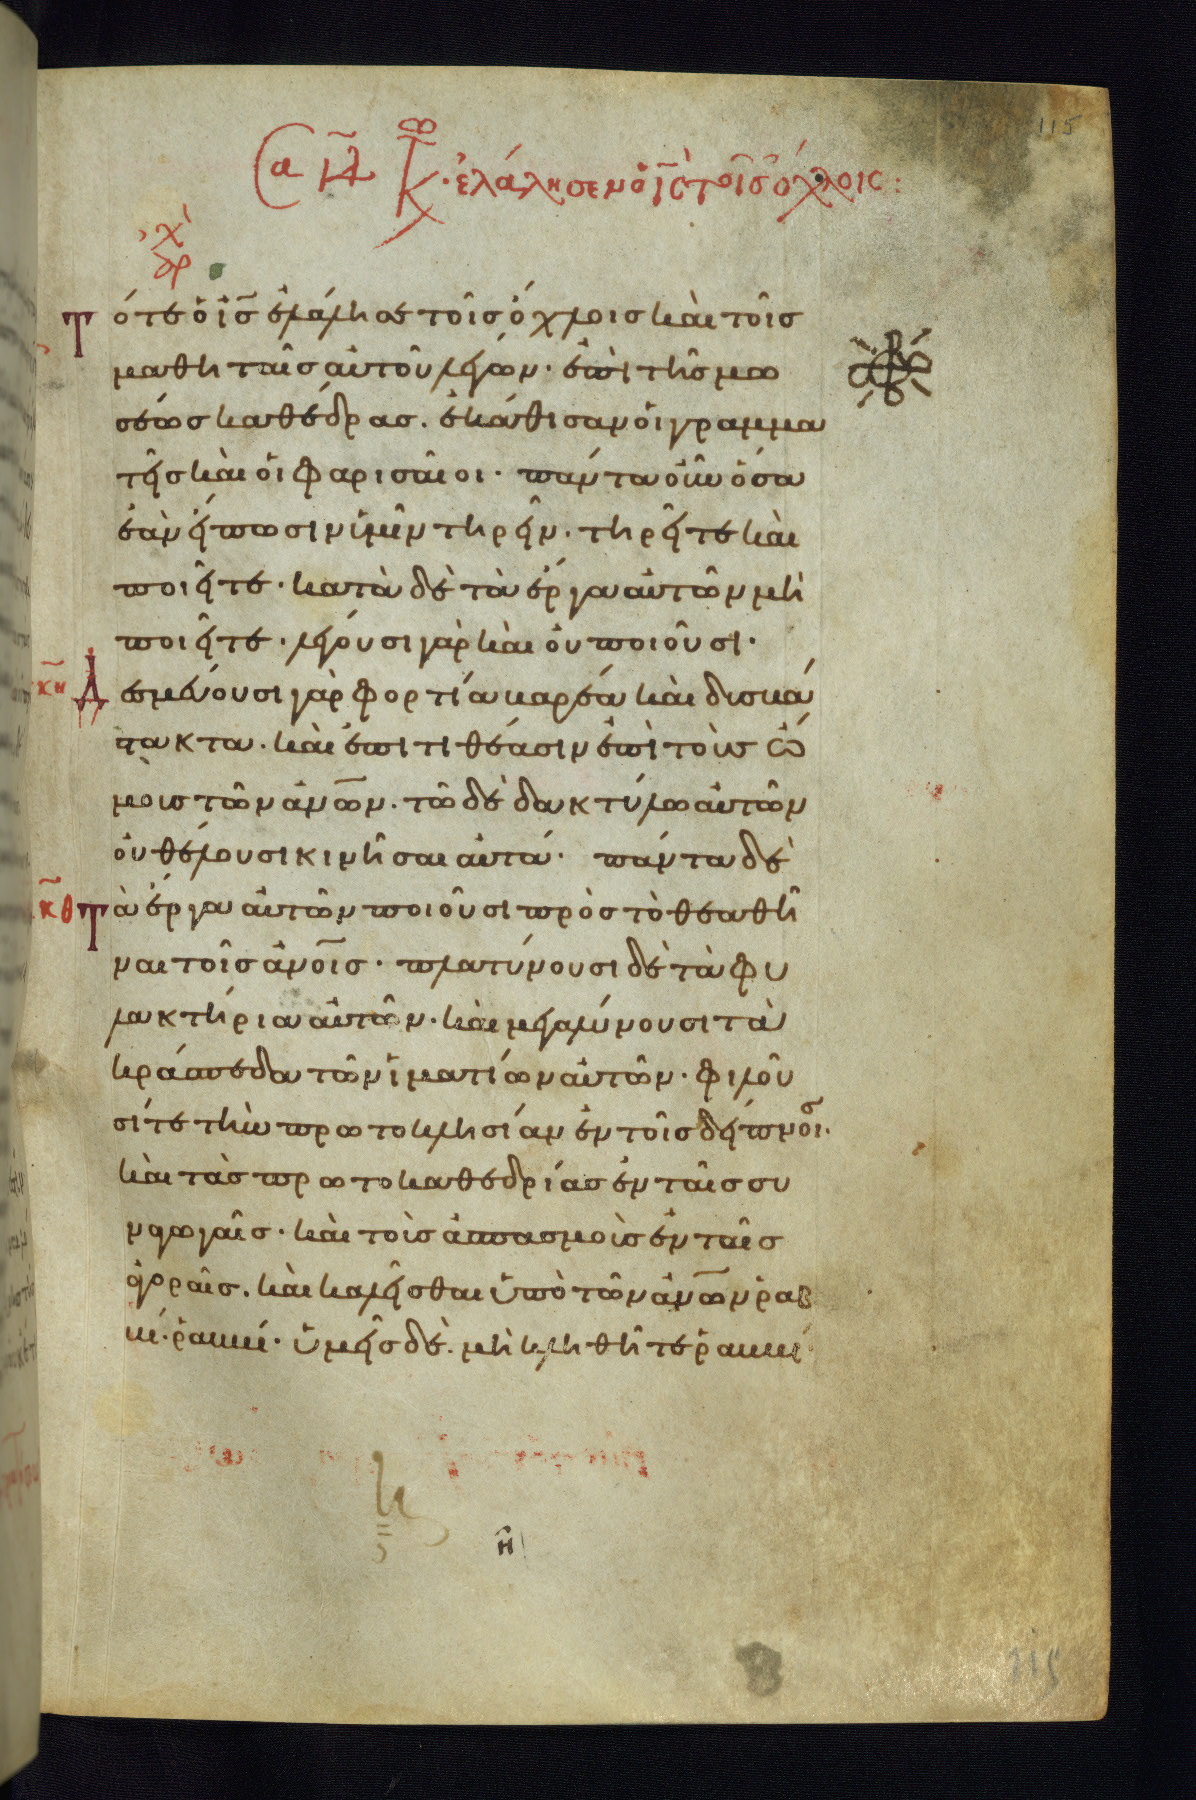 115
ἐλάλησεν ὁ ἰς τοῖς ὄχλοις:
Τότε ὁ ἰς ἐλάλησε τοῖς ὄχλοις καὶ τοῖς
μαθηταῖς αὐτοῦ λέγων· ἐπὶ τῆς μω
σέως καθέδρας. ἐκάθισαν οἱ γραμμα
τεῖς καὶ οἱ φαρισαῖοι· πάντα οὖν ὅσα
ἐὰν εἴπωσιν ὑμῖν τηρεῖν. τηρεῖτε καὶ
ποιεῖτε· κατὰ δὲ τὰ ἔργα αὐτῶν μὴ
ποιεῖτε. λέγουσι γὰρ καὶ οὐ ποιοῦσι·
κη Δεσμεύουσι γὰρ φορτία βαρέα καὶ δυσβά
στακτα. καὶ ἐπιτιθέασιν ἐπὶ τοὺς ὤ
μους τῶν ἀνων. τῶ δὲ δακτύλω αὐτῶν
οὐ θέλουσι κινῆσαι αὐτά· πάντα δὲ
κθ Τὰ ἔργα αὐτῶν ποιοῦσι πρὸς τὸ θεαθῆ
ναι τοῖς ἀνοις· πλατύνουσι δὲ τὰ φυ
λακτήρια αὐτῶν· καὶ μεγαλύνουσι τὰ
κράσπεδα τῶν ἱματίων αὐτῶν· φιλοῦ
σί τε τὴν πρωτοκλησίαν ἐν τοῖς δείπνοις·
καὶ τὰς πρωτοκαθεδρίας ἐν ταῖς συ
ναγωγαῖς· καὶ τοὺς ἀσπασμοὺς ἐν ταῖς
ἀγοραῖς. καὶ καλεῖσθαι ὑπὸ τῶν ἀνων ῥαβ
βί. ῥαββί· ὑμεῖς δὲ. μὴ κληθῆτε ῥαββί
115